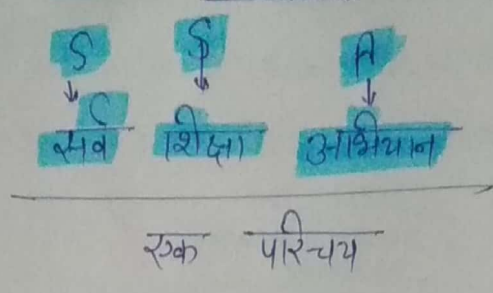 S S A
सर्व शिक्षा अभियान
एक परिचय